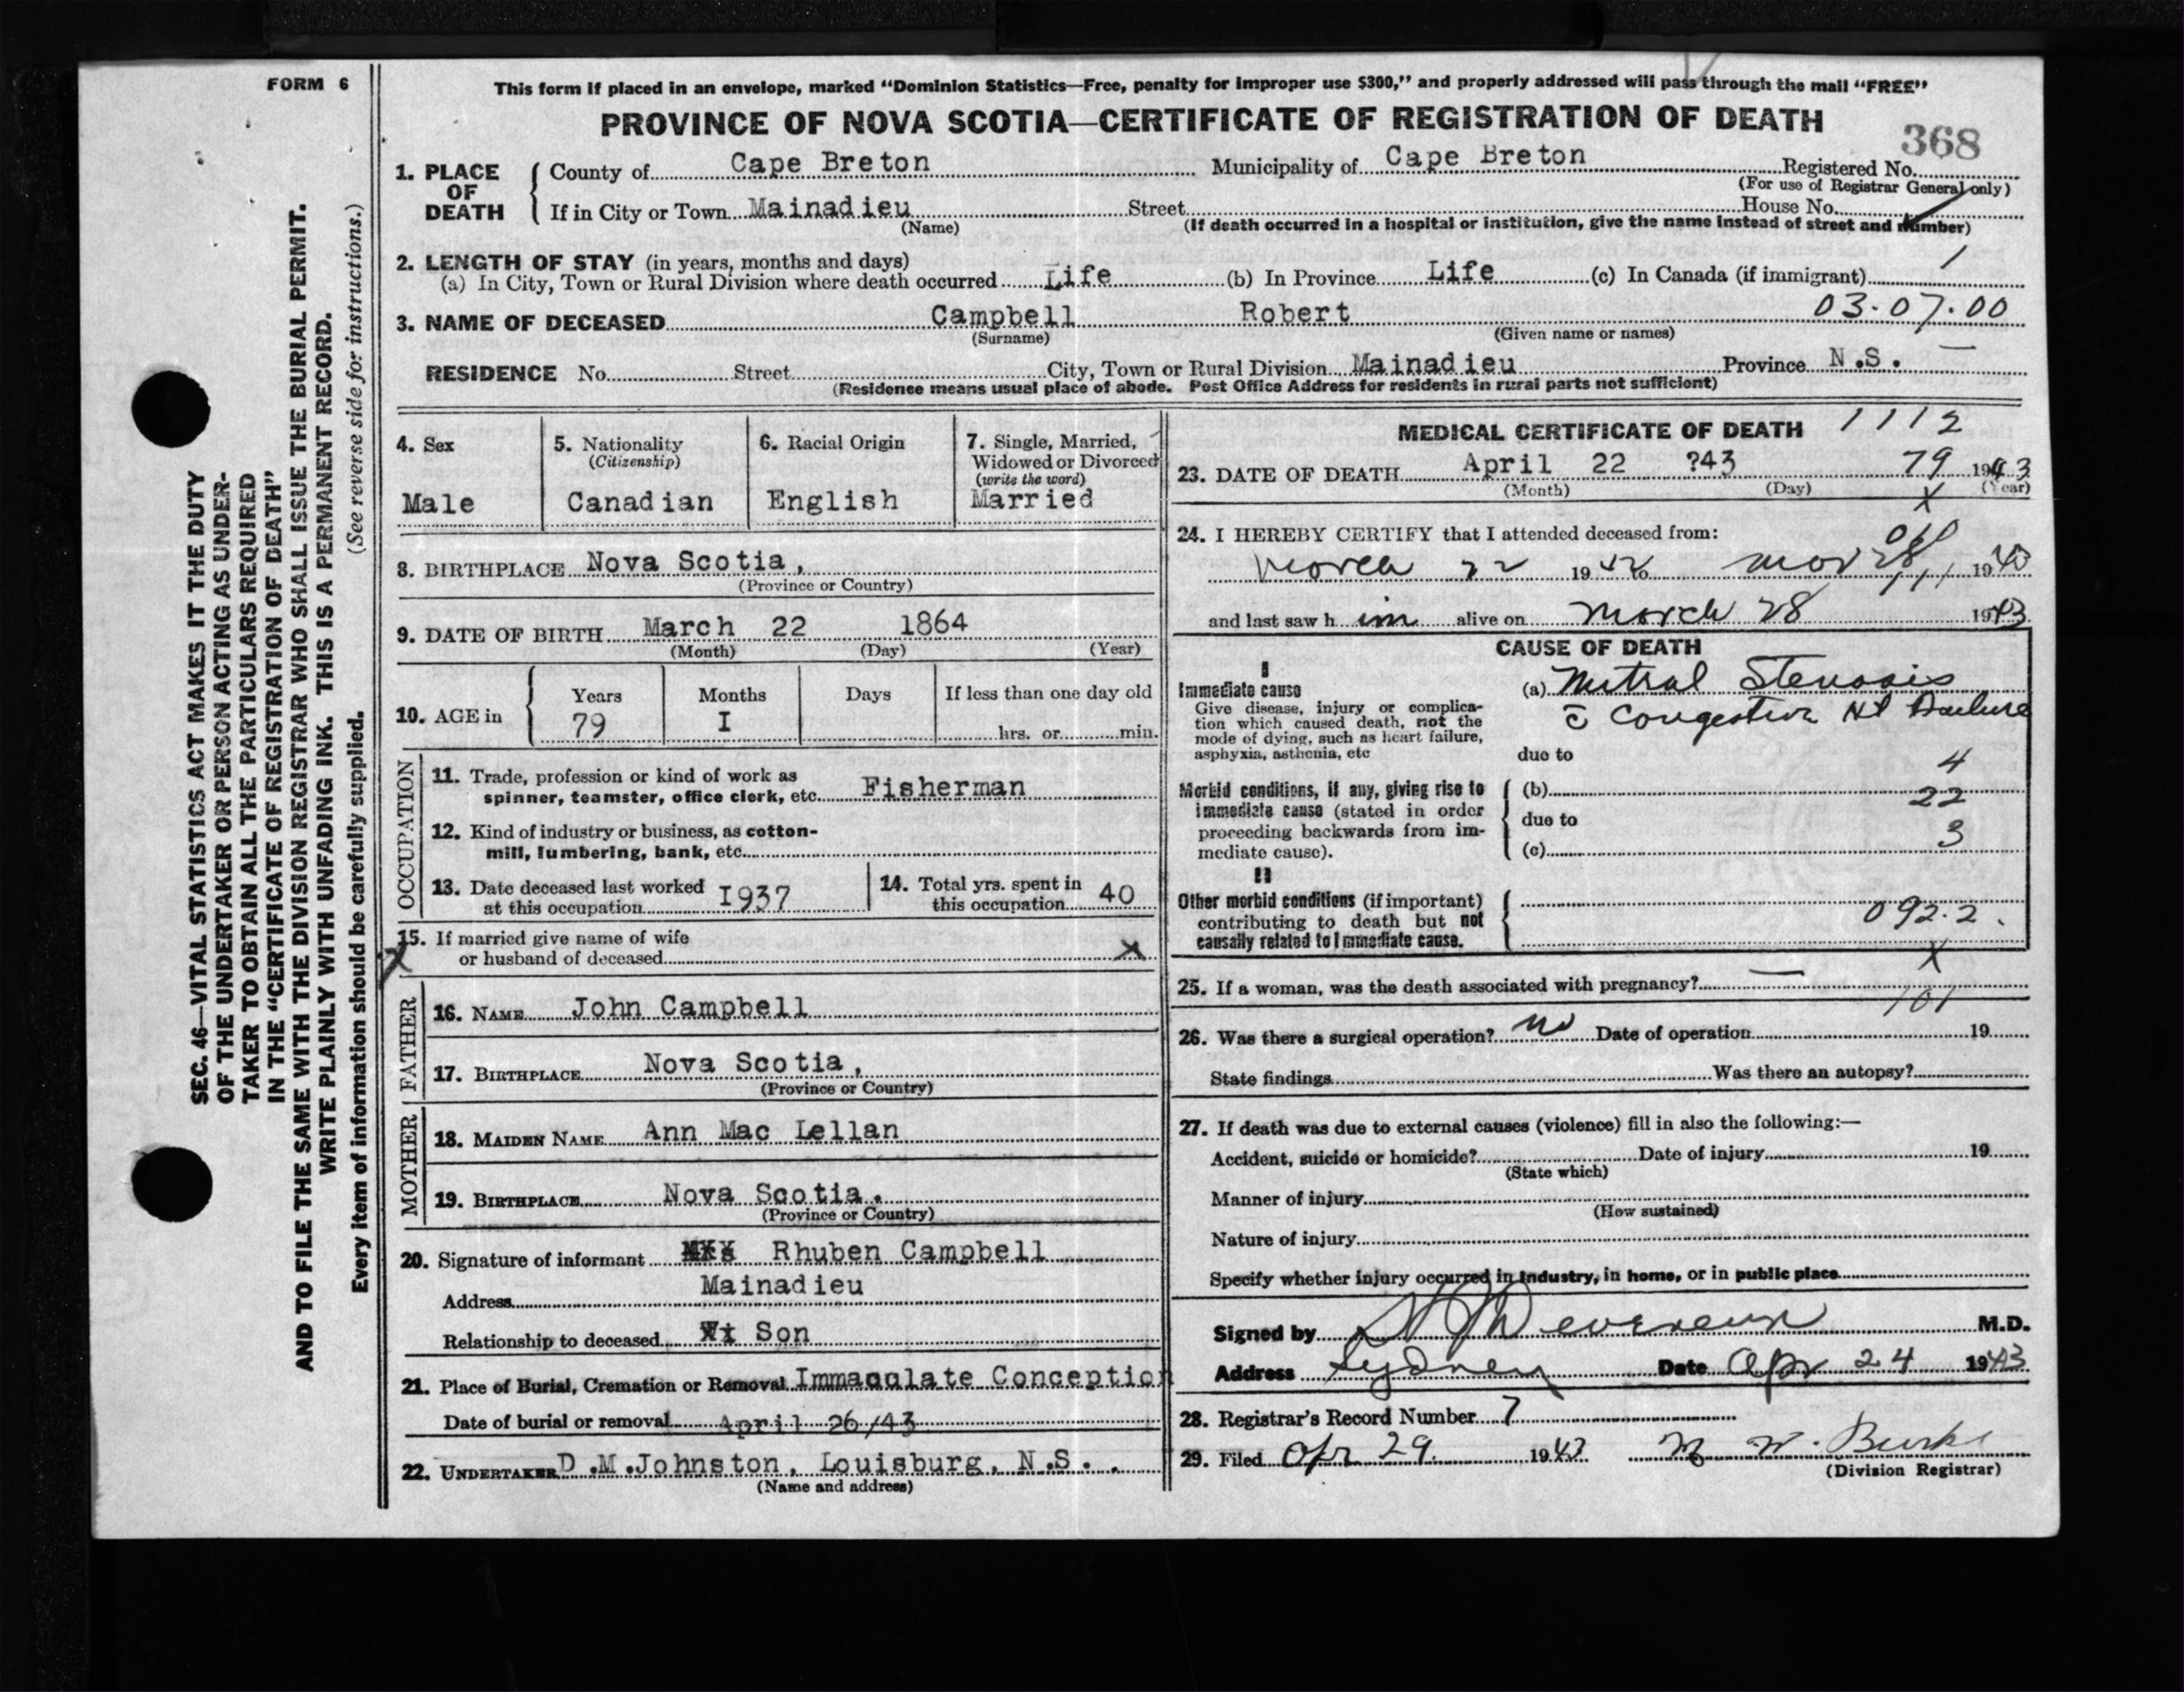 FORM 6
This form if placed in an envelope, marked “Dominion Statistics—Free, penalty for improper use $300,” and properly addressed will pass through the mail “FREE”
PROVINCE OF NOVA SCOTIA—CERTIFICATE OF REGISTRATION OF DEATH
368
1. PLACE OF DEATH County of Cape Breton Municipality of Cape Breton Registered No.
(For use of Registrar General only)
If in City or Town Mainadieu Street House No.
(Name) (If death occurred in a hospital or institution, give the name instead of street and number)
2. LENGTH OF STAY (in years, months and days) 1
(a) In City, Town or Rural Division where death occurred Life (b) In Province Life (c) In Canada (if immigrant)
3. NAME OF DECEASED Campbell Robert 03.07.00
(Surname) (Given name or names)
RESIDENCE No. Street City, Town or Rural Division Mainadieu Province N.S.
(Residence means usual place of abode. Post Office Address for residents in rural parts not sufficient)
4. Sex
Male
5. Nationality
(Citizenship)
Canadian
6. Racial Origin
English
7. Single, Married,
Widowed or Divorced
(write the word)
Married
8. BIRTHPLACE Nova Scotia,
(Province or Country)
9. DATE OF BIRTH March 22 1864
(Month) (Day) (Year)
10. AGE in Years Months Days If less than one day old
79 I hrs. or min.
OCCUPATION
11. Trade, profession or kind of work as
spinner, teamster, office clerk, etc. Fisherman
12. Kind of industry or business, as cotton-
mill, lumbering, bank, etc.
13. Date deceased last worked
at this occupation I937
14. Total yrs. spent in
this occupation 40
15. If married give name of wife
or husband of deceased X
X
FATHER
16. NAME John Campbell
17. BIRTHPLACE Nova Scotia,
(Province or Country)
MOTHER
18. MAIDEN NAME Ann Mac Lellan
19. BIRTHPLACE Nova Scotia.
(Province or Country)
20. Signature of informant Rhuben Campbell
Address Mainadieu
Relationship to deceased Son
21. Place of Burial, Cremation or Removal Immaculate Conception
Date of burial or removal April 26/43
22. UNDERTAKER D.M.Johnston, Louisburg, N.S.
(Name and address)
MEDICAL CERTIFICATE OF DEATH 1112
23. DATE OF DEATH April 22 ?43 79 1943
(Month) (Day) (Year)
X
24. I HEREBY CERTIFY that I attended deceased from:
March 22 1942 to Mar 28 1943
and last saw h im alive on March 28 1943
CAUSE OF DEATH
I
Immediate cause
Give disease, injury or complica-
tion which caused death, not the
mode of dying, such as heart failure,
asphyxia, asthenia, etc
(a) Mitral Stenosis
c̄ Congestive Ht Failure
due to
4
Morbid conditions, if any, giving rise to
immediate cause (stated in order
proceeding backwards from im-
mediate cause).
(b)
22
due to
3
(c)
II
Other morbid conditions (if important)
contributing to death but not
causally related to immediate cause.
092.2.
X
25. If a woman, was the death associated with pregnancy? —
101
26. Was there a surgical operation? no Date of operation 19
State findings Was there an autopsy?
27. If death was due to external causes (violence) fill in also the following:—
Accident, suicide or homicide? Date of injury 19
(State which)
Manner of injury
(How sustained)
Nature of injury
Specify whether injury occurred in industry, in home, or in public place
Signed by Devereux M.D.
Address Sydney Date Apr 24 1943
28. Registrar's Record Number 7
29. Filed Apr 29. 1943 M W. Burke
(Division Registrar)
SEC. 46—VITAL STATISTICS ACT MAKES IT THE DUTY
OF THE UNDERTAKER OR PERSON ACTING AS UNDER-
TAKER TO OBTAIN ALL THE PARTICULARS REQUIRED
IN THE “CERTIFICATE OF REGISTRATION OF DEATH”
AND TO FILE THE SAME WITH THE DIVISION REGISTRAR WHO SHALL ISSUE THE BURIAL PERMIT.
WRITE PLAINLY WITH UNFADING INK. THIS IS A PERMANENT RECORD.
(See reverse side for instructions.)
Every item of information should be carefully supplied.